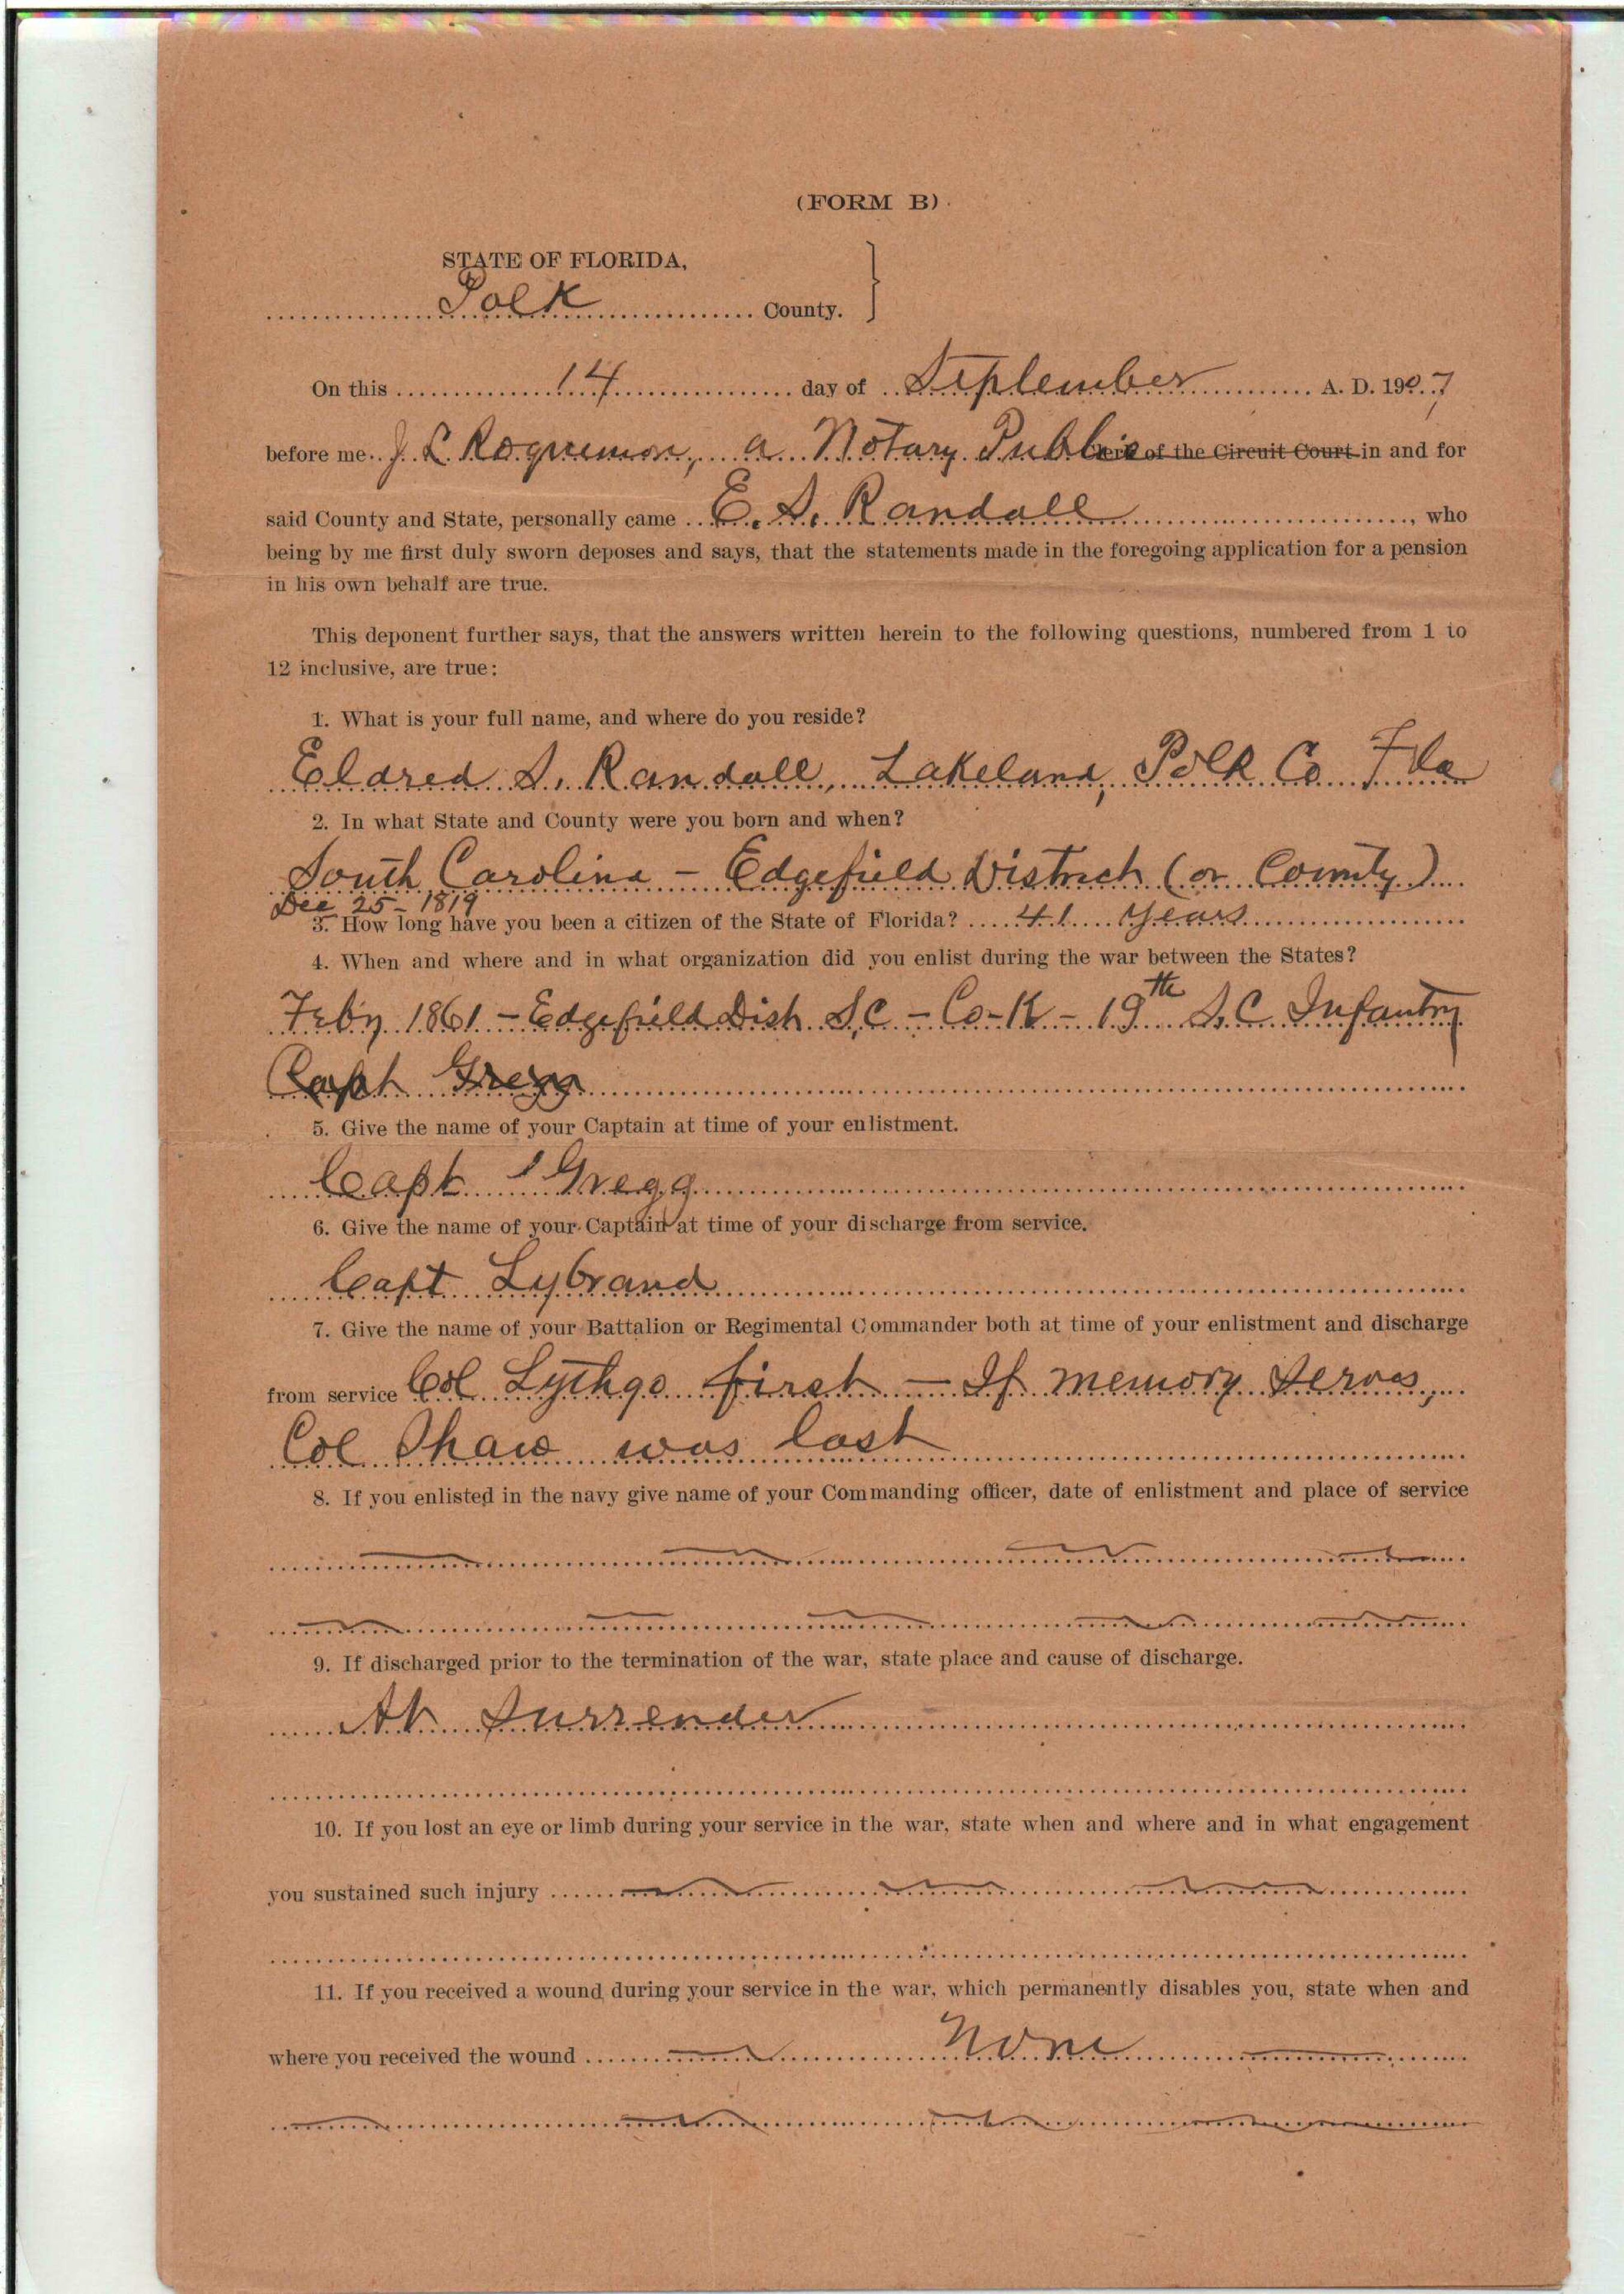 (FORM B)
STATE OF FLORIDA,
Polk County.
On this 14 day of September A. D. 1907
before me J. L. Roquemore, a Notary Public Clerk of the Circuit Court in and for
said County and State, personally came E. S. Randall, who
being by me first duly sworn deposes and says, that the statements made in the foregoing application for a pension
in his own behalf are true.
This deponent further says, that the answers written herein to the following questions, numbered from 1 to
12 inclusive, are true:
1. What is your full name, and where do you reside?
Eldred S. Randall, Lakeland, Polk Co. Fla
2. In what State and County were you born and when?
South Carolina - Edgefield District (or County)
Dec 25 - 1819
3. How long have you been a citizen of the State of Florida? 41 Years
4. When and where and in what organization did you enlist during the war between the States?
Feby 1861 - Edgefield Dist S.C - Co-K - 19th S.C. Infantry
Capt Gregg
5. Give the name of your Captain at time of your enlistment.
Capt Gregg
6. Give the name of your Captain at time of your discharge from service.
Capt Lybrand
7. Give the name of your Battalion or Regimental Commander both at time of your enlistment and discharge
from service Col Lythgo first - If memory serves,
Col Shaw was last
8. If you enlisted in the navy give name of your Commanding officer, date of enlistment and place of service
9. If discharged prior to the termination of the war, state place and cause of discharge.
At Surrender
10. If you lost an eye or limb during your service in the war, state when and where and in what engagement
you sustained such injury
11. If you received a wound during your service in the war, which permanently disables you, state when and
where you received the wound None